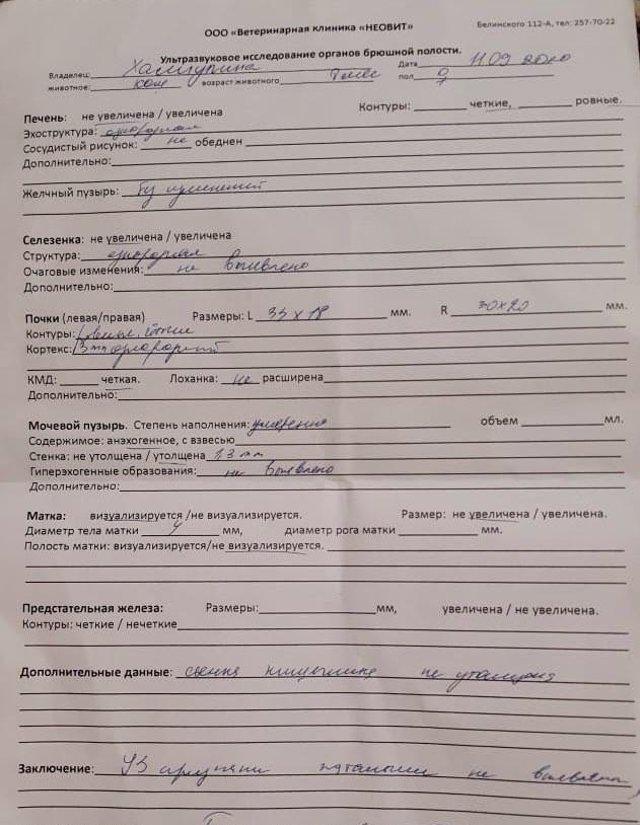 ООО «Ветеринарная клиника «НЕОВИТ»
Белинского 112-А, тел: 257-70-22
Ультразвуковое исследование органов брюшной полости.
Владелец: Дата 11.09 2020
животное: кош возраст животного 7 мес пол ♀
Печень: не увеличена / увеличена Контуры: четкие, ровные.
Эхоструктура: однородная
Сосудистый рисунок: не обеднен
Дополнительно:
Желчный пузырь: б/у изменений
Селезенка: не увеличена / увеличена
Структура: однородная
Очаговые изменения: не выявлено
Дополнительно:
Почки (левая/правая) Размеры: L 33 х 18 мм. R 30х20 мм.
Контуры:
Кортекс: 3 мм однородный
КМД: четкая. Лоханка: не расширена
Дополнительно:
Мочевой пузырь. Степень наполнения: умеренно объем мл.
Содержимое: анэхогенное, с взвесью
Стенка: не утолщена / утолщена 1,3 мм
Гиперэхогенные образования: не выявлено
Дополнительно:
Матка: визуализируется /не визуализируется. Размер: не увеличена / увеличена.
Диаметр тела матки 4 мм, диаметр рога матки мм.
Полость матки: визуализируется/не визуализируется.
Предстательная железа: Размеры: мм, увеличена / не увеличена.
Контуры: четкие / нечеткие
Дополнительные данные: стенка кишечника не утолщена
Заключение: УЗ патологии не выявлены